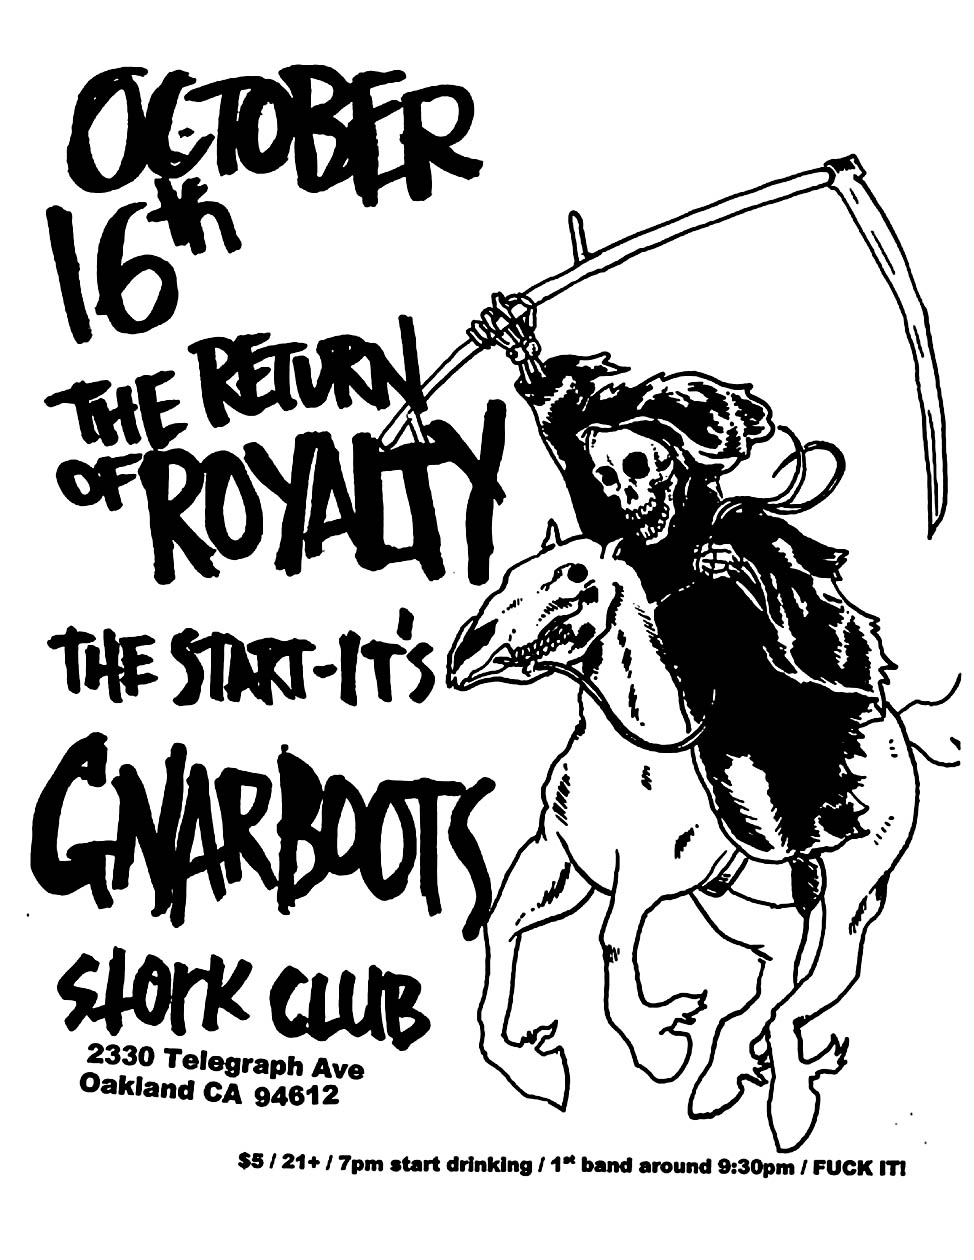 OCTOBER
16th
THE RETURN
OF ROYALTY
THE START-IT'S
GNARBOOTS
STORK CLUB
2330 Telegraph Ave
Oakland CA 94612
$5 / 21+ / 7pm start drinking / 1st band around 9:30pm / FUCK IT!